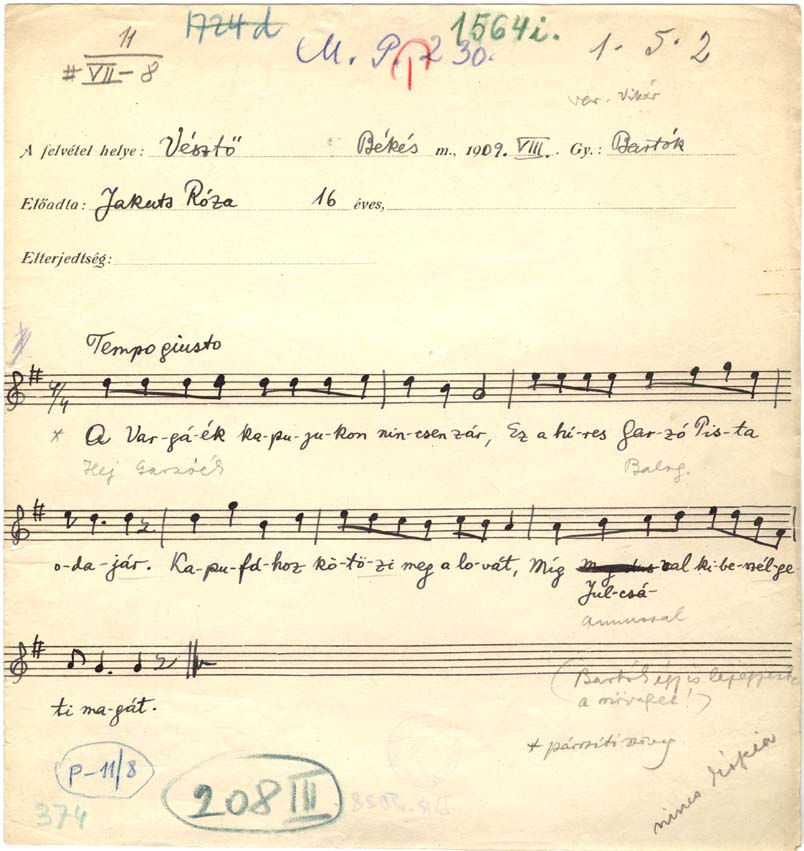 11
1724d
1564i.
# VII - 8
M. P. I 230.
1. 5. 2
var. Vikár
A felvétel helye: Vésztő Békés m., 1909. VIII. Gy.: Bartók
Előadta: Jakuts Róza 16 éves,
Elterjedtség:
Tempo giusto
4/4
* A Var-gá-ék ka-pu-ju-kon nin-csen zár, Ez a hí-res Gar-zó Pis-ta
Hej Garzóék Balog.
o-da-jár. Ka-pu-fá-hoz kö-tö-zi meg a lo-vát, Míg val ki-be-szél-ge
Jul-csá-
Annussal
ti ma-gát.
(Bartók így is lejegyezte
a szöveget!)
+ párosító szöveg
P-11/8
208 III
374